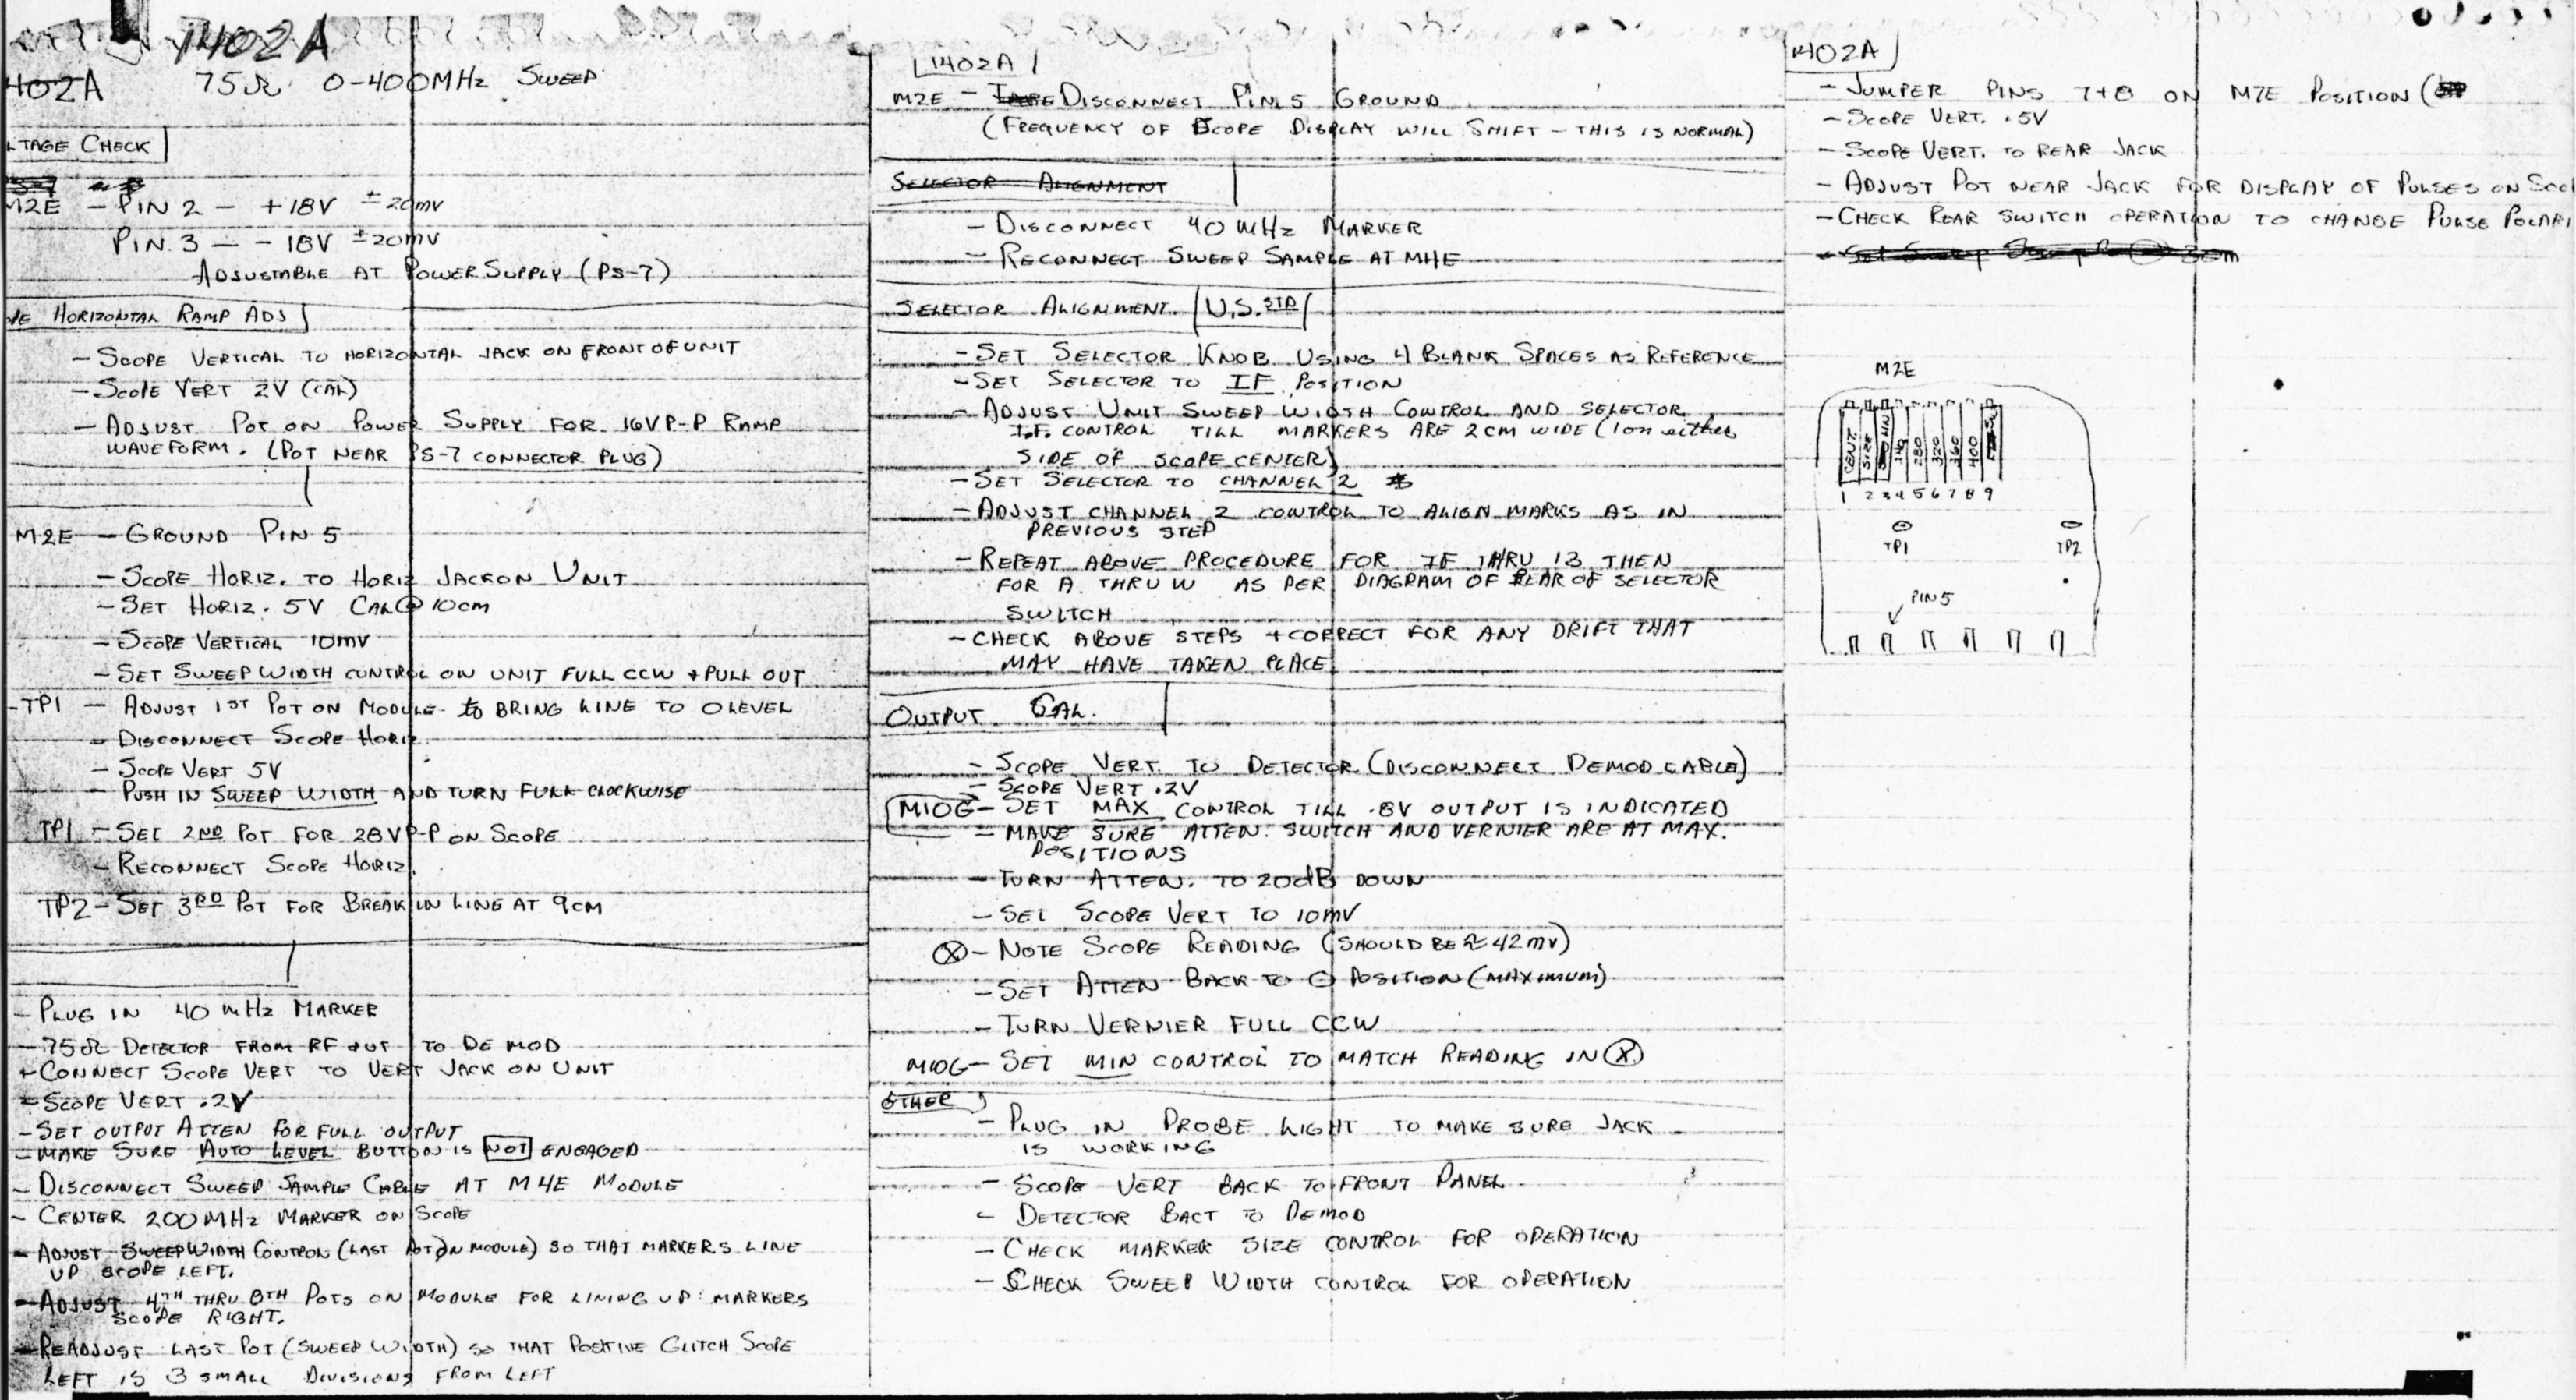 1402A
1402A 75Ω 0-400MHz SWEEP
LTAGE CHECK
M2E - PIN 2 - +18V ±20mv
PIN 3 - -18V ±20mv
ADJUSTABLE AT POWER SUPPLY (PS-7)
PE HORIZONTAL RAMP ADJ
- SCOPE VERTICAL TO HORIZONTAL JACK ON FRONT OF UNIT
- SCOPE VERT 2V (CAL)
- ADJUST POT ON POWER SUPPLY FOR 16VP-P RAMP
WAVEFORM. (POT NEAR PS-7 CONNECTOR PLUG)
M2E - GROUND PIN 5
- SCOPE HORIZ. TO HORIZ JACK ON UNIT
- SET HORIZ. 5V CAL @ 10cm
- SCOPE VERTICAL 10mv
- SET SWEEP WIDTH CONTROL ON UNIT FULL CCW + PULL OUT
- TP1 - ADJUST 1ST POT ON MODULE to BRING LINE TO 0 LEVEL
- DISCONNECT SCOPE HORIZ.
- SCOPE VERT 5V
- PUSH IN SWEEP WIDTH AND TURN FULL CLOCKWISE
TP1 - SET 2ND POT FOR 28VP-P ON SCOPE
- RECONNECT SCOPE HORIZ.
TP2 - SET 3RD POT FOR BREAK IN LINE AT 9CM
- PLUG IN 40 MHz MARKER
- 75Ω DETECTOR FROM RF OUT TO DE MOD
- CONNECT SCOPE VERT TO VERT JACK ON UNIT
- SCOPE VERT .2V
- SET OUTPUT ATTEN FOR FULL OUTPUT
- MAKE SURE AUTO LEVEL BUTTON IS NOT ENGAGED
- DISCONNECT SWEEP SAMPLE CABLE AT M4E MODULE
- CENTER 200MHz MARKER ON SCOPE
- ADJUST SWEEPWIDTH CONTROL (LAST POT ON MODULE) SO THAT MARKERS LINE
UP SCOPE LEFT.
- ADJUST 4TH THRU 8TH POTS ON MODULE FOR LINING UP MARKERS
SCOPE RIGHT.
- READJUST LAST POT (SWEEP WIDTH) SO THAT POSITIVE GLITCH SCOPE
LEFT IS 3 SMALL DIVISIONS FROM LEFT
1402A
M2E - DISCONNECT PIN 5 GROUND
(FREQUENCY OF SCOPE DISPLAY WILL SHIFT - THIS IS NORMAL)
SELECTOR ALIGNMENT
- DISCONNECT 40 MHz MARKER
- RECONNECT SWEEP SAMPLE AT M4E
SELECTOR ALIGNMENT U.S. STD
- SET SELECTOR KNOB USING 4 BLANK SPACES AS REFERENCE
- SET SELECTOR TO IF POSITION
- ADJUST UNIT SWEEP WIDTH CONTROL AND SELECTOR
I.F. CONTROL TILL MARKERS ARE 2CM WIDE (1 on either
SIDE OF SCOPE CENTER)
- SET SELECTOR TO CHANNEL 2
- ADJUST CHANNEL 2 CONTROL TO ALIGN MARKS AS IN
PREVIOUS STEP
- REPEAT ABOVE PROCEDURE FOR IF THRU 13 THEN
FOR A THRU W AS PER DIAGRAM OF REAR OF SELECTOR
SWITCH
- CHECK ABOVE STEPS + CORRECT FOR ANY DRIFT THAT
MAY HAVE TAKEN PLACE
OUTPUT CAL.
- SCOPE VERT. TO DETECTOR (DISCONNECT DEMOD CABLE)
- SCOPE VERT .2V
M10G - SET MAX CONTROL TILL .8V OUTPUT IS INDICATED
- MAKE SURE ATTEN. SWITCH AND VERNIER ARE AT MAX.
POSITIONS
- TURN ATTEN. TO 20dB DOWN
- SET SCOPE VERT TO 10MV
Ⓧ - NOTE SCOPE READING (SHOULD BE ≈ 42mv)
- SET ATTEN BACK TO 0 POSITION (MAXIMUM)
- TURN VERNIER FULL CCW
M10G - SET MIN CONTROL TO MATCH READING IN Ⓧ
OTHER
- PLUG IN PROBE LIGHT TO MAKE SURE JACK
IS WORKING
- SCOPE VERT BACK TO FRONT PANEL
- DETECTOR BACT TO DEMOD
- CHECK MARKER SIZE CONTROL FOR OPERATION
- CHECK SWEEP WIDTH CONTROL FOR OPERATION
1402A
- JUMPER PINS 7+8 ON M7E POSITION (
- SCOPE VERT. .5V
- SCOPE VERT. TO REAR JACK
- ADJUST POT NEAR JACK FOR DISPLAY OF PULSES ON SCO
- CHECK REAR SWITCH OPERATION TO CHANGE PULSE POLARI
- Set Sweep Sample @ 30m
M2E
CENT. SIZE 280 320 360 400
1 2 3 4 5 6 7 8 9
TP1 TP2
PIN 5